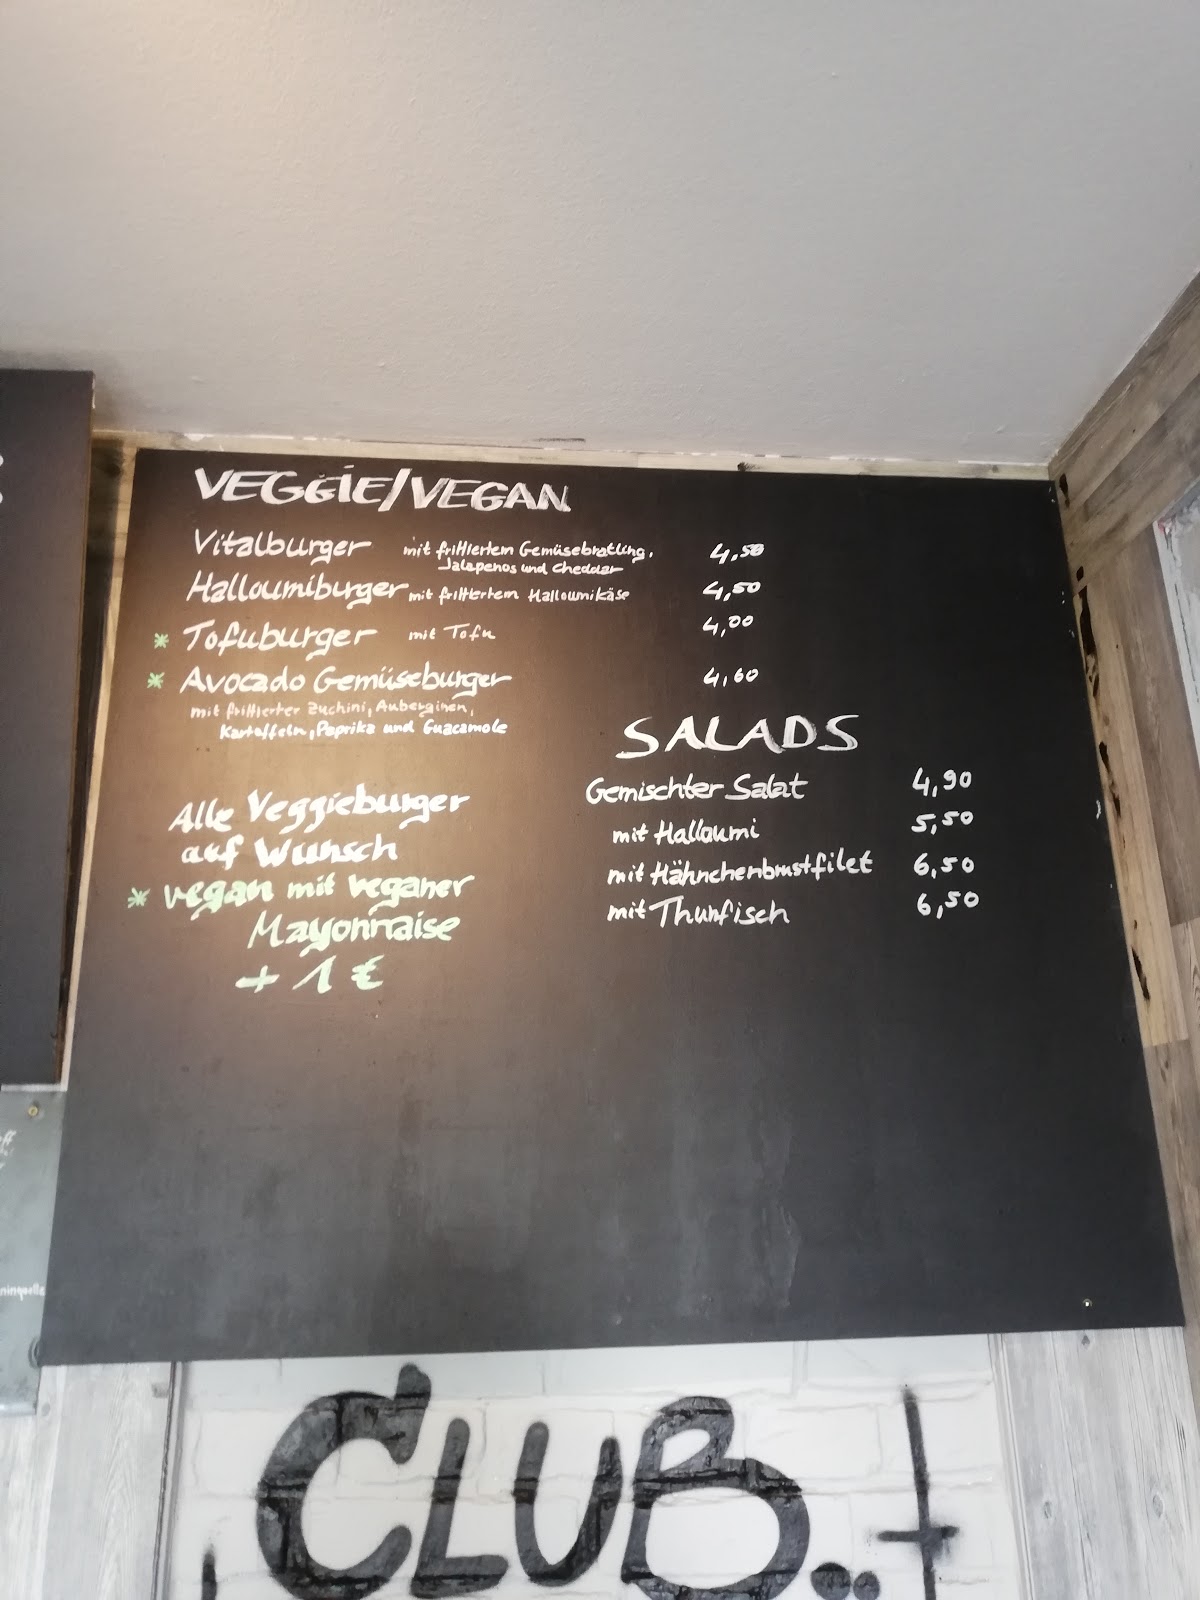 VEGGIE/VEGAN
Vitalburger mit frittiertem Gemüsebratling, 4,50
Jalapenos und Cheddar
Halloumiburger mit frittiertem Halloumikäse 4,50
* Tofuburger mit Tofu 4,00
* Avocado Gemüseburger 4,60
mit frittierter Zuchini, Auberginen,
Kartoffeln, Paprika und Guacamole
Alle Veggieburger
auf Wunsch
* vegan mit veganer
Mayonnaise
+ 1 €
SALADS
Gemischter Salat 4,90
mit Halloumi 5,50
mit Hähnchenbrustfilet 6,50
mit Thunfisch 6,50
CLUB..